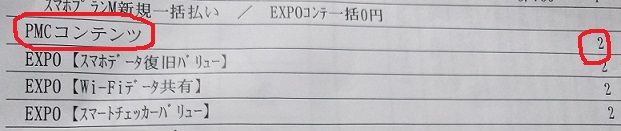 スマホプランM新規一括払い ／ EXPOコンテ一括0円
PMCコンテンツ 2
EXPO【スマホデータ復旧バリュー】 2
EXPO【Wi-Fiデータ共有】 2
EXPO【スマートチェッカーバリュー】 2